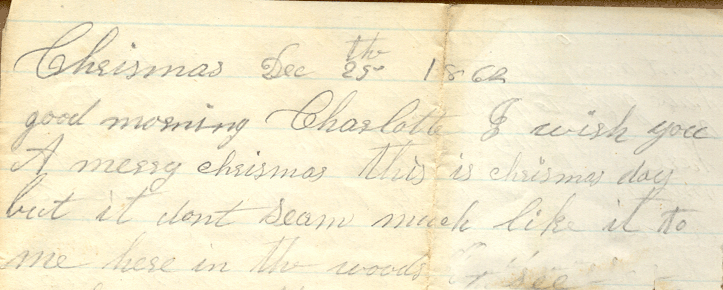 Chrismas Dec 25th 1862
good morning Charlotte I wish you
A merry chrismas this is chrismas day
but it dont seam much like it to
me here in the woods or see